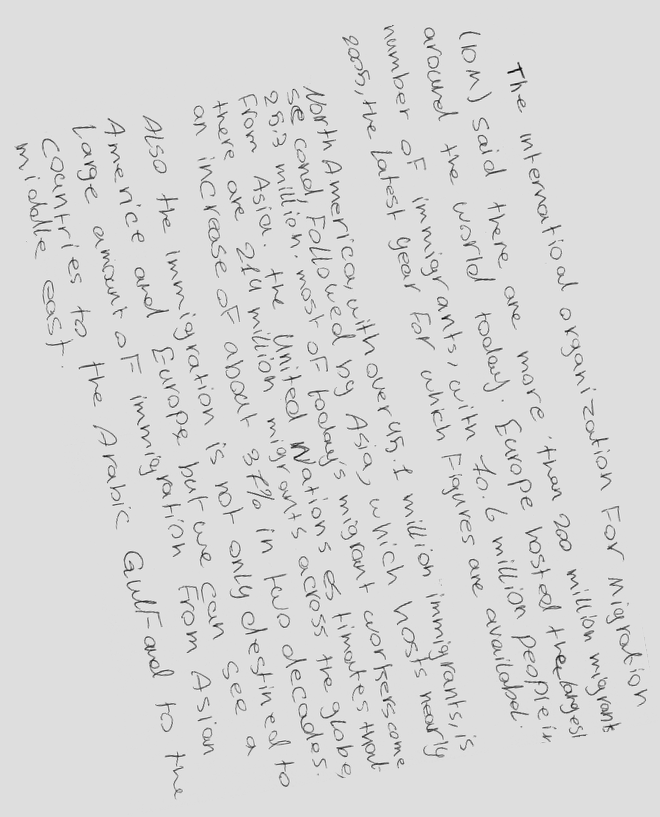 The internatioal organization For Migration
(IOM) said there are more than 200 million migrants
around the world today. Europe hosted the largest
number of immigrants, with 70.6 million people in
2005, the latest year for which Figures are availabel.
North America, with over 45.1 million immigrants, is
second, Followed by Asia, which hosts nearly
25.3 million. most of today's migrant workers come
From Asia. the United Nations estimates that
there are 214 million migrants across the globe,
an increase of about 37% in two decades.
Also the immigration is not only destined to
Americe and Europe but we can see a
large amount of immigration From Asian
countries to the Arabic Gulf and to the
middle east.